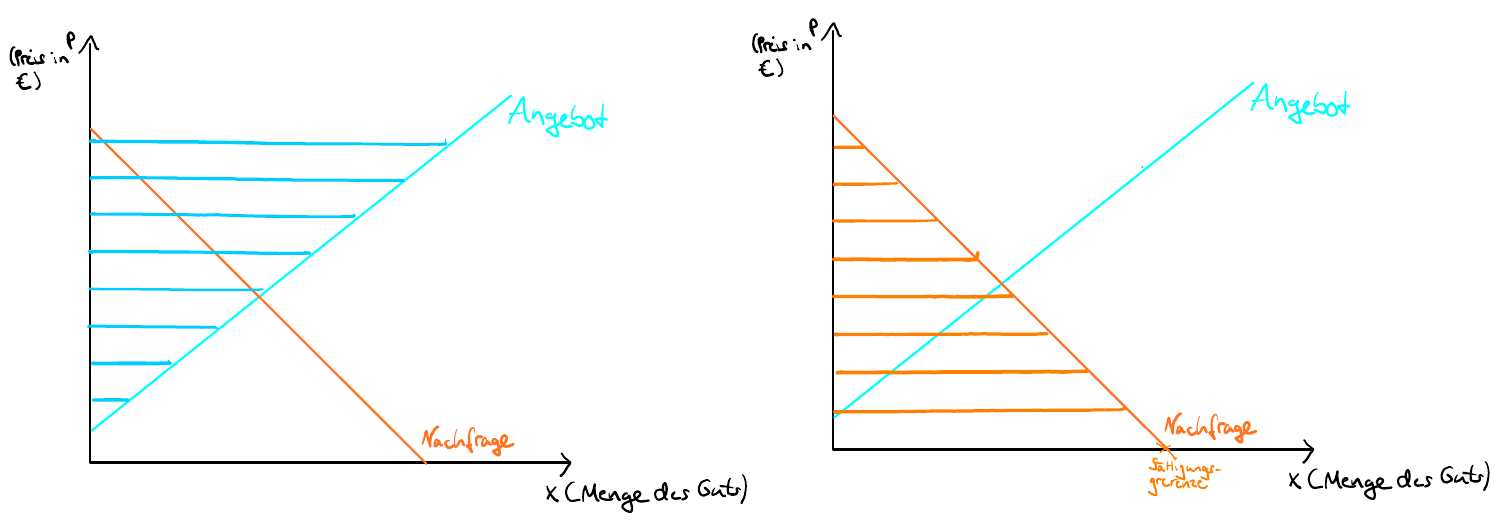 P
(Preis in
€)
Angebot
Nachfrage
x (Menge des Guts)
P
(Preis in
€)
Angebot
Nachfrage
Sättigungs-
grenze
x (Menge des Guts)